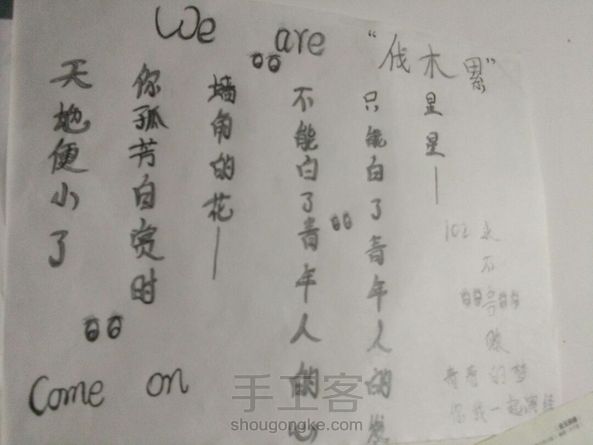 We are “伐木累”
星星——
只能白了青年人的发
不能白了青年人的心
墙角的花——
你孤芳自赏时
天地便小了
Come on
102 永不言败
你我一起
手工客
shougongke.com